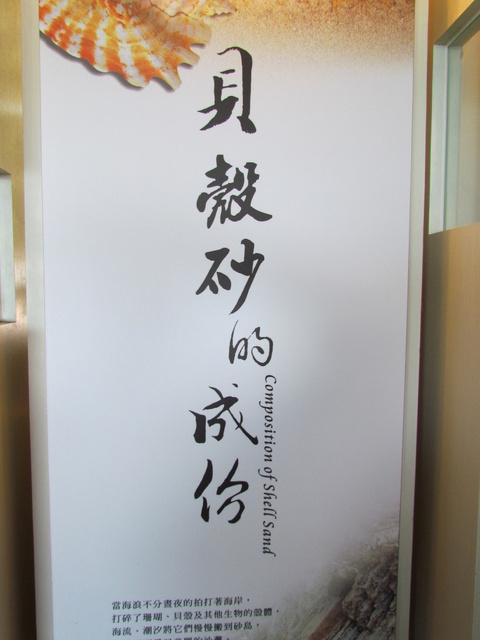 貝殼砂的成份
Composition of Shell Sand
當海浪不分晝夜的拍打著海岸，
打碎了珊瑚、貝殼及其他生物的殼體，
海流、潮汐將它們慢慢搬到砂島，